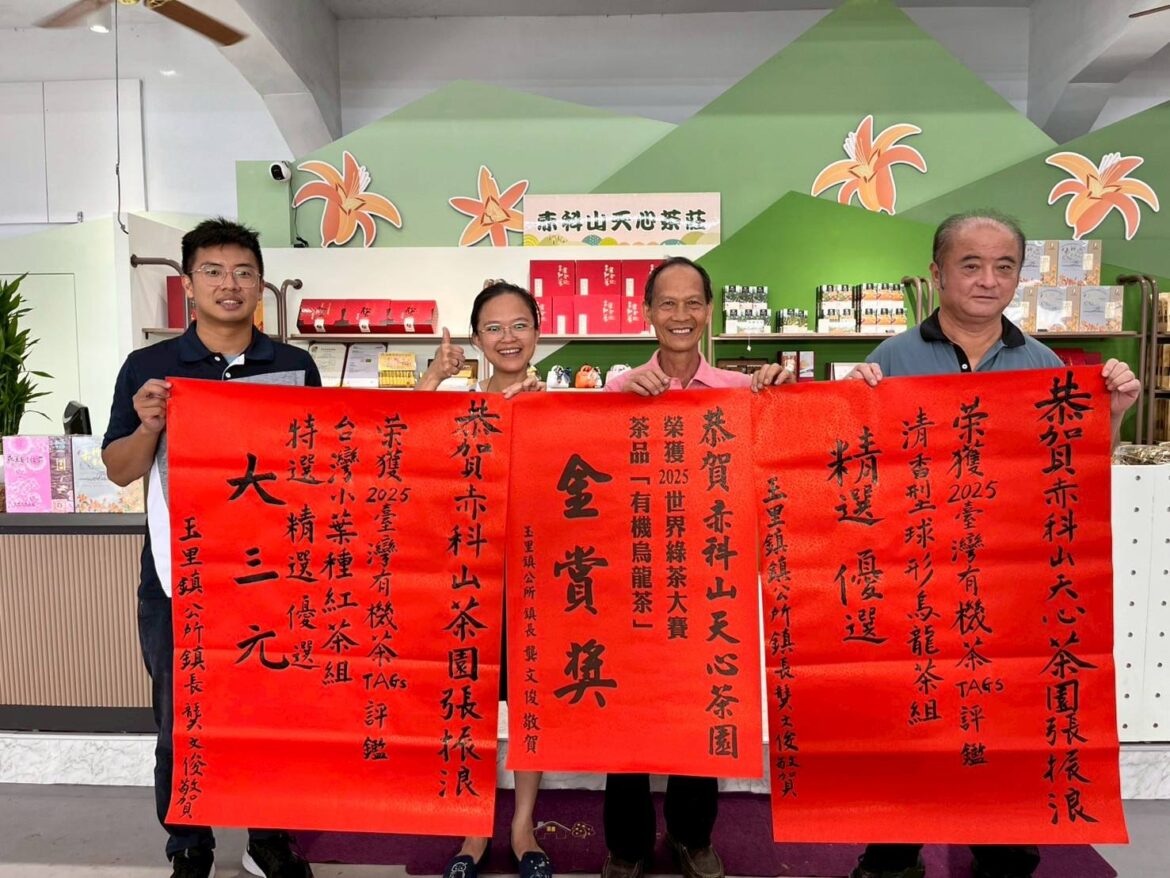 赤科山天心茶莊
恭賀赤科山茶園張振浪
榮獲2025臺灣有機茶TAGs評鑑
台灣小葉種紅茶組
特選 精選優選
大三元
玉里鎮公所鎮長龔文俊敬賀
恭賀赤科山天心茶園
榮獲2025世界綠茶大賽
茶品「有機烏龍茶」
金賞獎
玉里鎮公所 鎮長 龔文俊 敬賀
恭賀赤科山天心茶園張振浪
榮獲2025臺灣有機茶TAGS評鑑
清香型球形烏龍茶組
精選 優選
玉里鎮鎮公所鎮長龔文俊敬賀